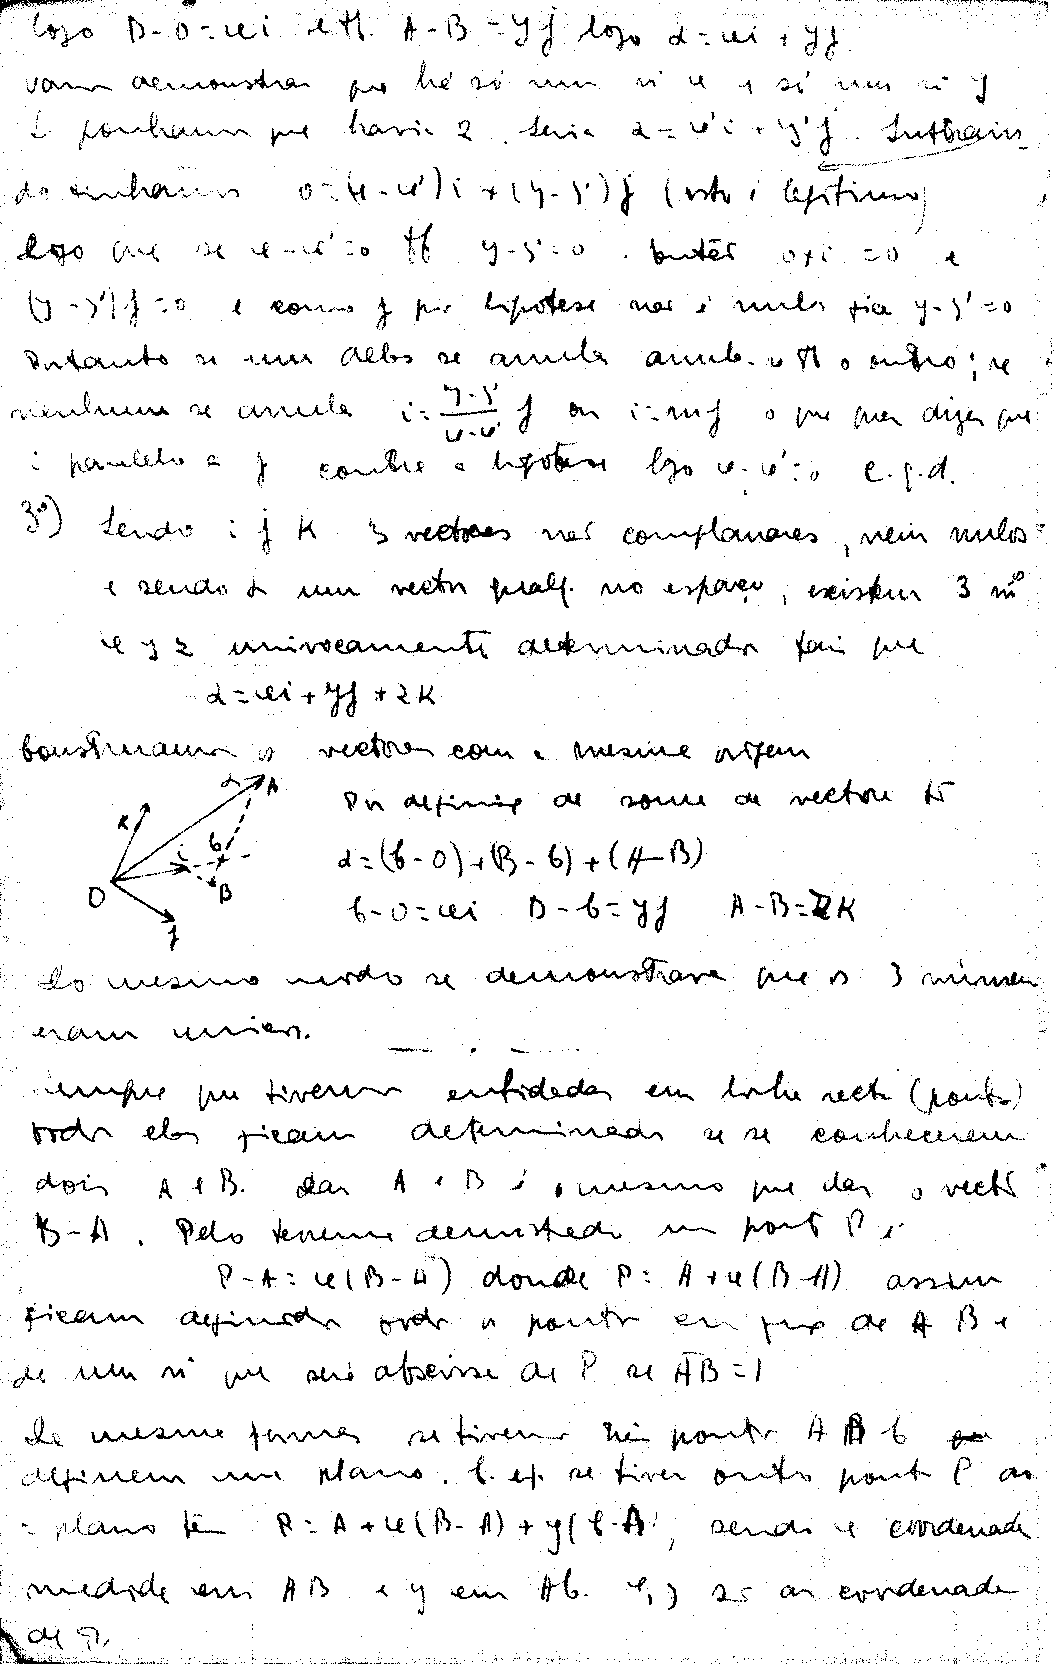 logo B-O=xi etb. A-B=yj logo α=xi+yj
vamos demonstrar que há só um nº x e só um nº y
Suponhamos que havia 2. Seria α=x'i+y'j. Subtrain-
do tinhamos 0=(x-x')i+(y-y')j (isto é legitimo)
logo que se x-x'=0 tb y-y'=0. Então 0×i=0 e
(y-y')j=0 e como j por hipotese não é nulo fica y-y'=0
Portanto se um deles se anula anula-se tb o outro; se
nenhum se anula i=\frac{y-y'}{x-x'} j ou i=mj o que quer dizer que
i paralelo a j contra a hipotese logo x-x'=0 c.q.d.
3º) Sendo i j K 3 vectores não complanares, nem nulos
e sendo α um vector qualq. no espaço, existem 3 nºs
x y z univocamente determinados tais que
α=xi+yj+zK
Construamos os vectores com a mesma origem
α A
K
i C
O B
j
Por definição de soma de vectores tò
α=(C-O)+(B-C)+(A-B)
C-O=xi B-C=yj A-B=zK
Do mesmo modo se demonstrava que os 3 números
eram unicos.
Sempre que tivermos entidades em linha recta (pontos)
todos eles ficam determinados se se conhecerem
dois A e B. Dar A e B é o mesmo que dar o vector
B-A. Pelo teorema demonstrado um ponto P é
P-A=x(B-A) donde P=A+x(B-A) assim
ficam definidos todos os pontos em função de A B e
de um nº que será abscissa de P se AB=1
Da mesma forma se tivermos três pontos A B C
definem um plano. C. ef. se tiver outro ponto P do
plano tem P=A+x(B-A)+y(C-A), sendo x coordenada
medida em AB e y em AC. x, y são as coordenadas
de P.